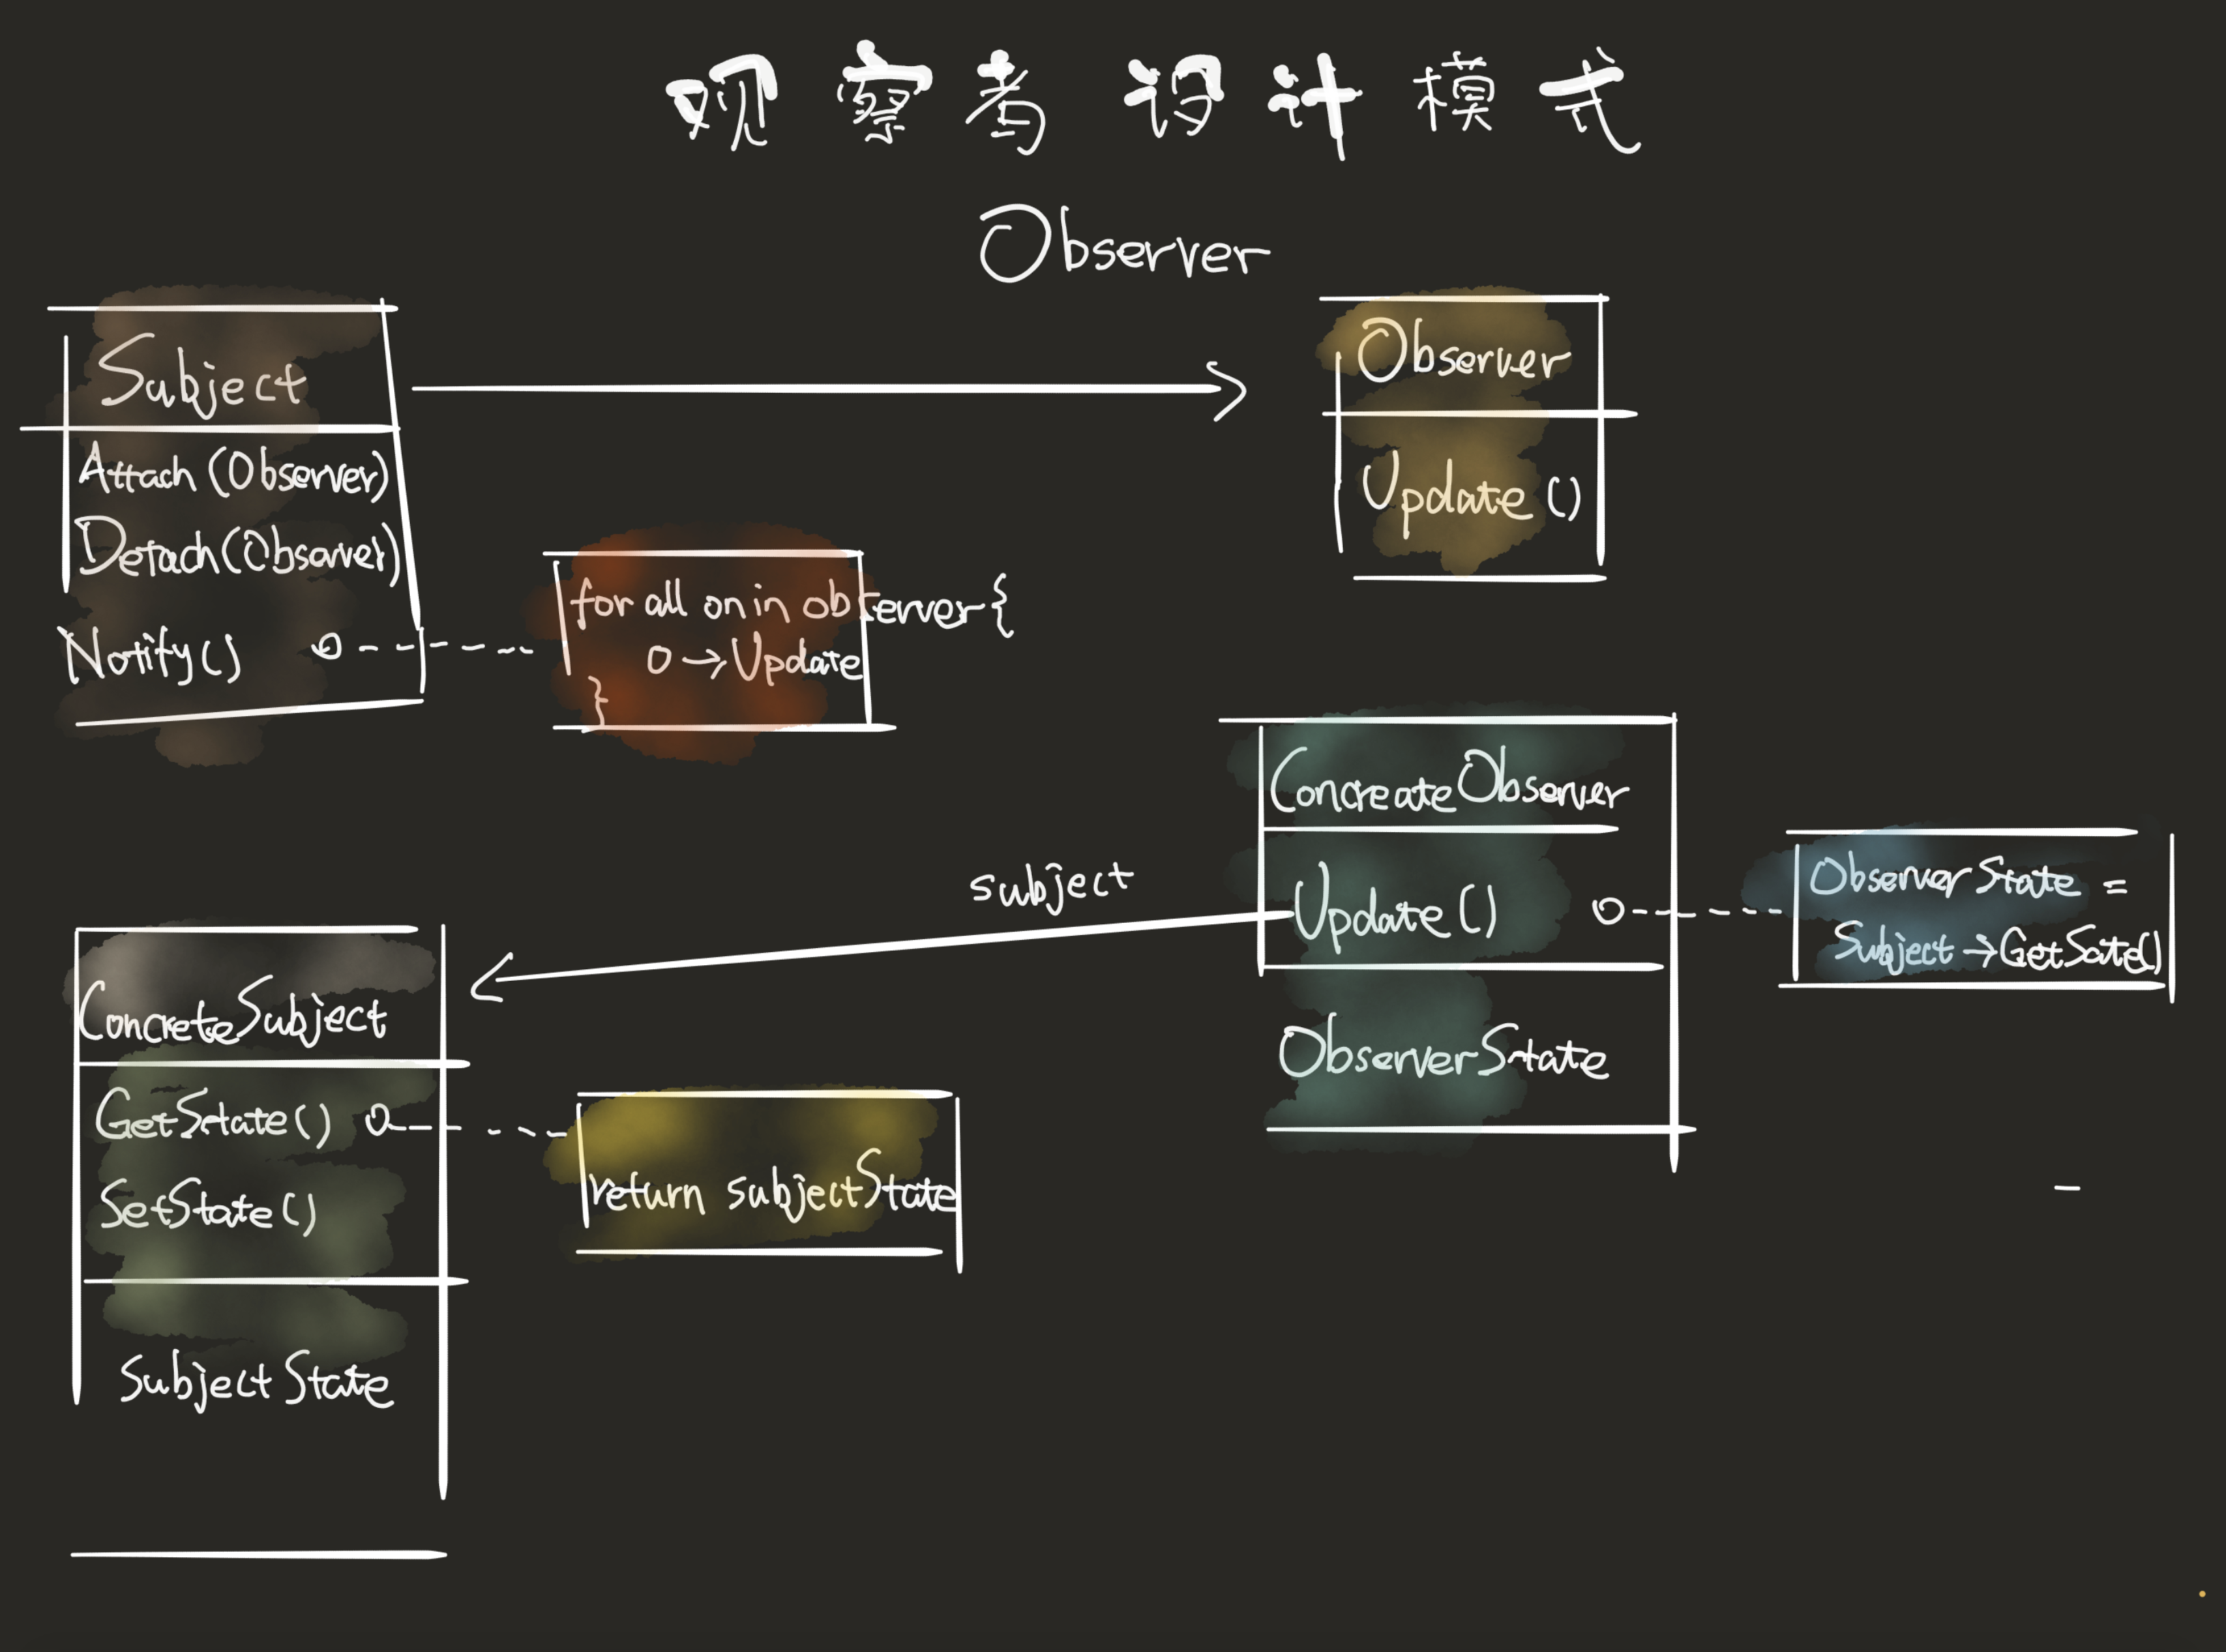 观察者设计模式
Observer
Subject
Attach(Observer)
Detach(Observer)
Notify()
for all on in observer{
o→Update
}
Observer
Update()
ConcreateObserver
Update()
ObserverState
ObserverState =
Subject→GetSate()
subject
ConcreteSubject
GetState()
SetState()
SubjectState
return subjectState